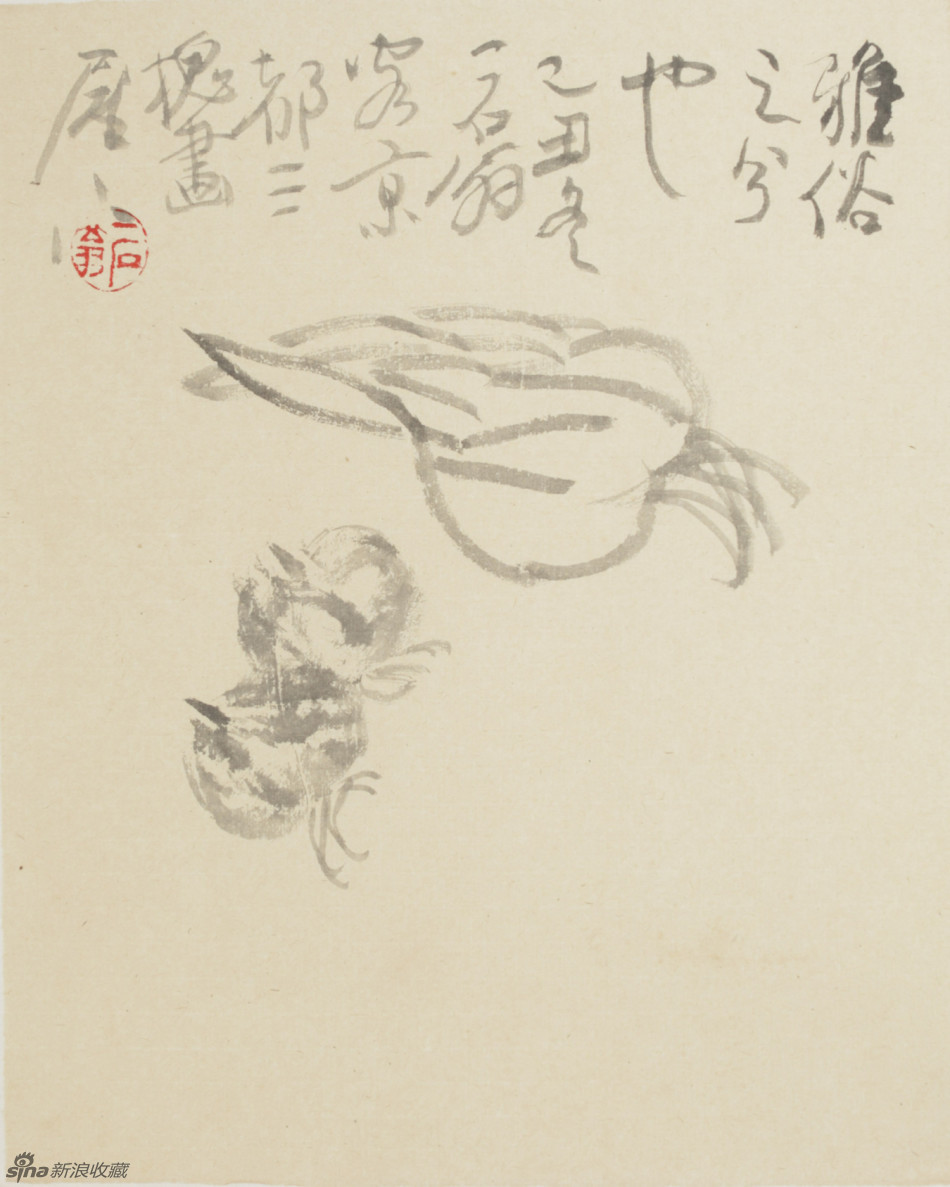 雅俗
之分
也
己丑冬
一石翁
客京
都三
槐畫
屋
一石翁
sina新浪收藏